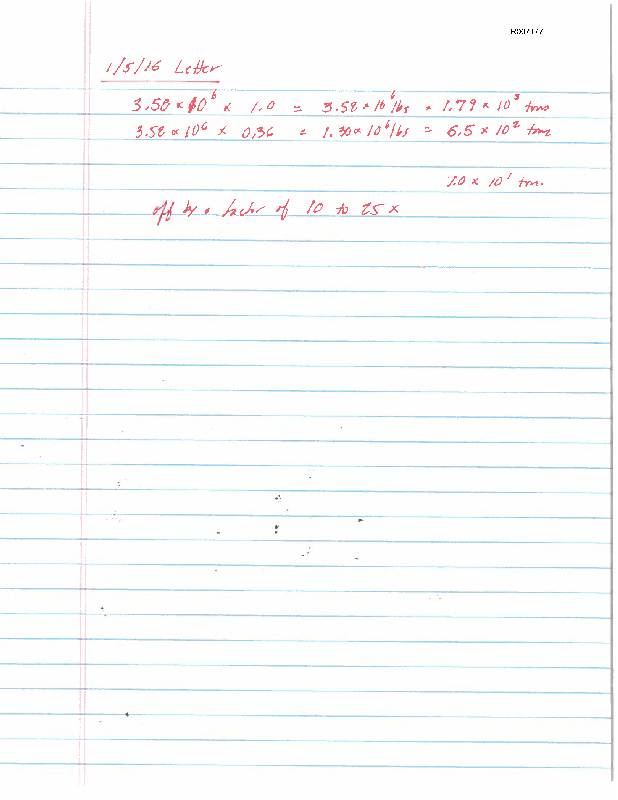 R007177
1/5/16 Letter
3.58 x 10⁶ x 1.0 = 3.58 x 10⁶ lbs = 1.79 x 10³ tons
3.58 x 10⁶ x 0.36 = 1.30 x 10⁶ lbs = 6.5 x 10² tons
7.0 x 10¹ tons.
off by a factor of 10 to 25 x